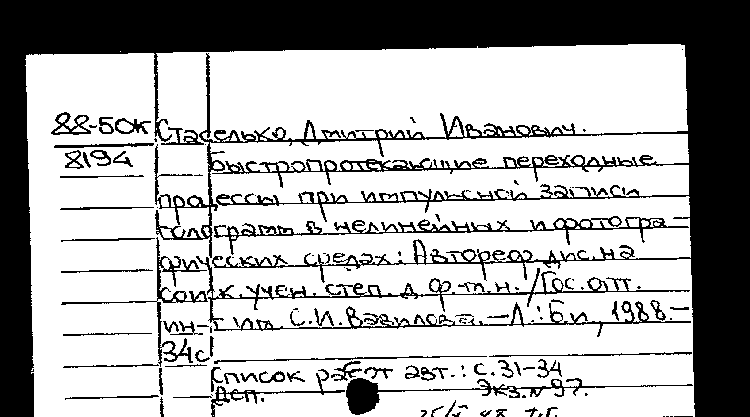 88-5OK Стаселько, Дмитрий Иванович.
8194 Быстропротекающие переходные
процессы при импульсной записи
голограмм в нелинейных и фотогра-
фических средах: Автореф. дис. на
соиск. учен. степ. д. ф.-м. н. / Гос. опт.
ин-т им. С.И. Вавилова. — Л.: Б.и., 1988.—
34с.
Список работ авт.: с.31-34
Дсп. Экз. № 97.